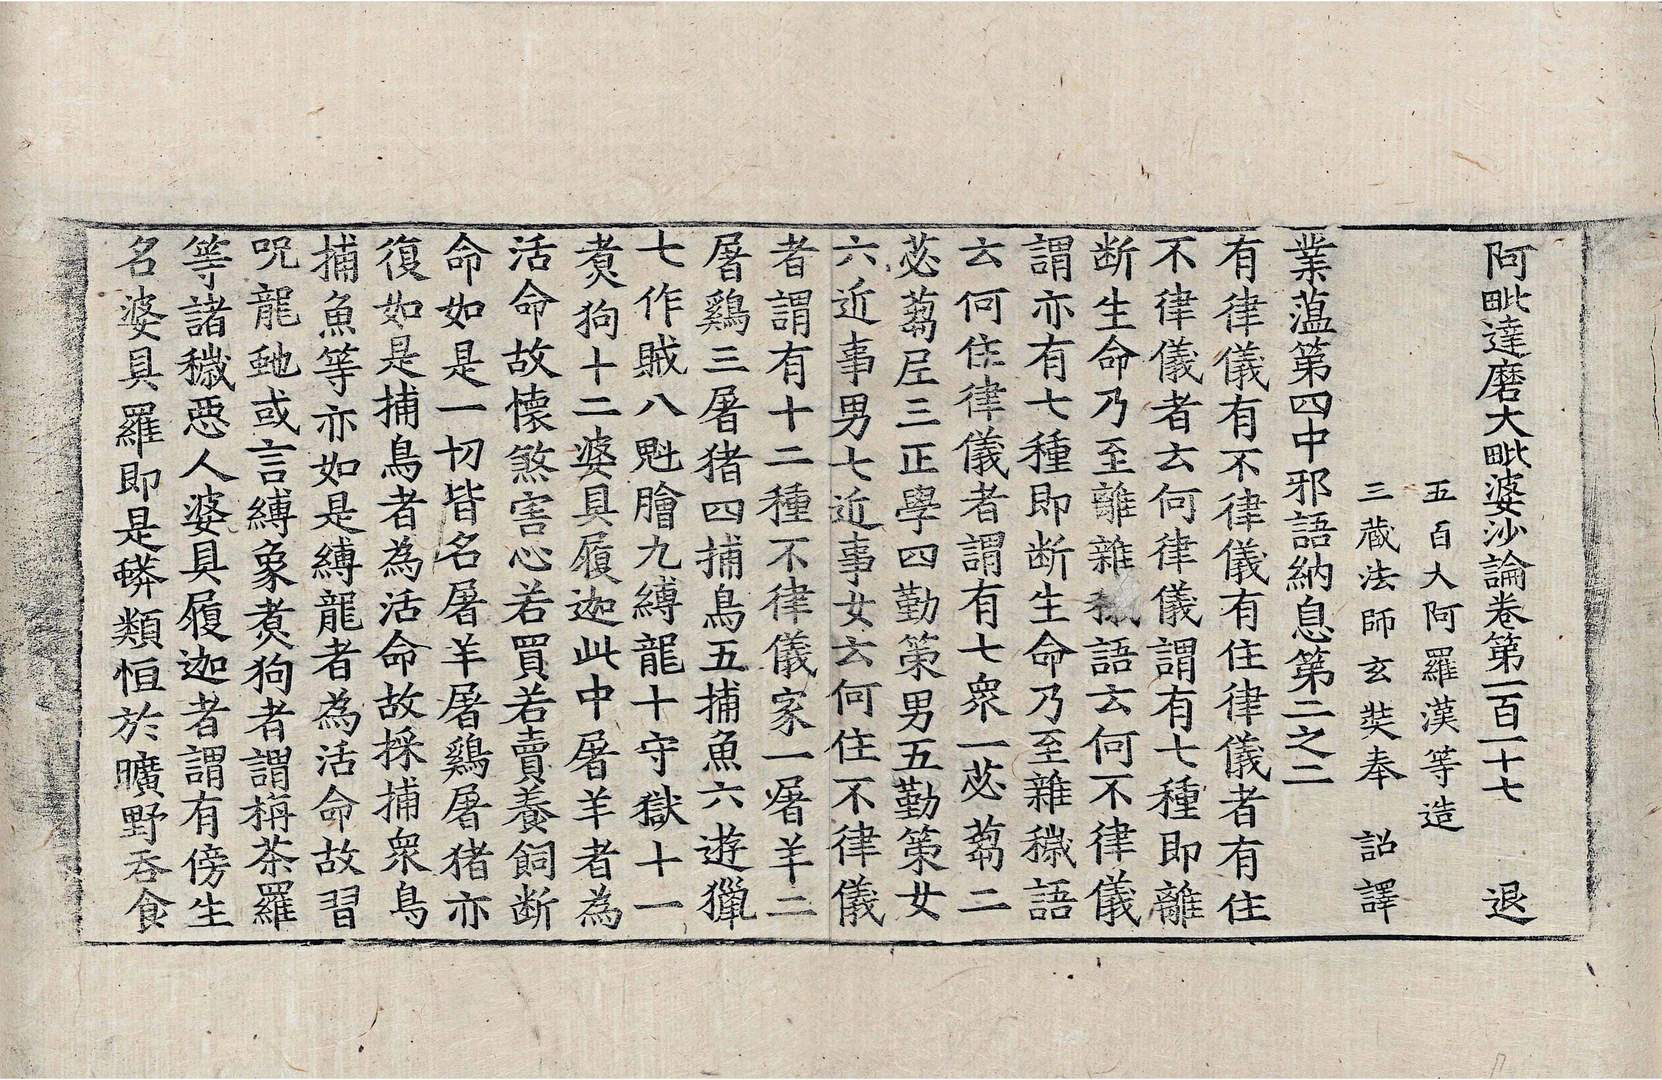 阿毗達磨大毗婆沙論卷第一百一十七 退
五百大阿羅漢等造
三藏法師玄奘奉 詔譯
業蕰第四中邪語納息第二之二
有律儀有不律儀有住律儀者有住
不律儀者云何律儀謂有七種即離
断生命乃至離雜穢語云何不律儀
謂亦有七種即断生命乃至雜穢語
云何住律儀者謂有七衆一苾蒭二
苾蒭尼三正學四勤策男五勤策女
六近事男七近事女云何住不律儀
者謂有十二種不律儀家一屠羊二
屠鷄三屠猪四捕鳥五捕魚六遊獵
七作賊八魁膾九縛龍十守獄十一
煑狗十二婆具履迦此中屠羊者為
活命故懷煞害心若買若賣養飼断
命如是一切皆名屠羊屠鷄屠猪亦
復如是捕鳥者為活命故採捕衆鳥
捕魚等亦如是縛龍者為活命故習
呪龍虵或言縛象煑狗者謂旃荼羅
等諸穢惡人婆具履迦者謂有傍生
名婆具羅即是蟒類恒於曠野吞食